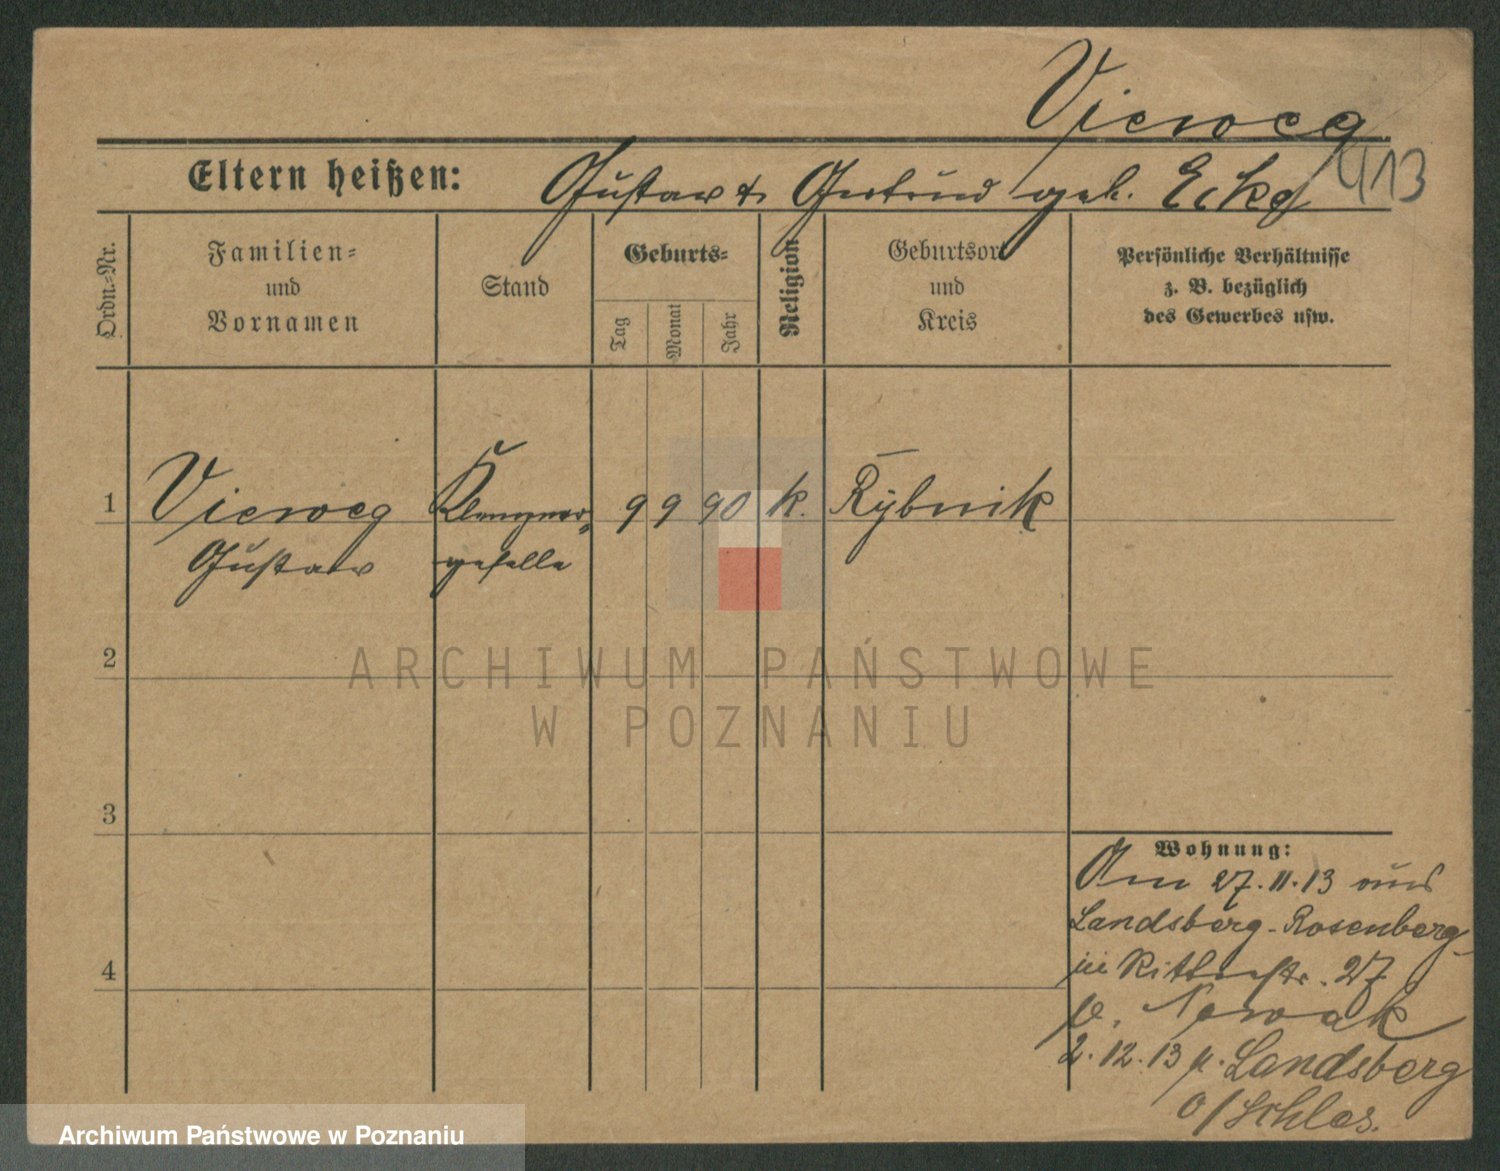 Vieweg
413
Eltern heißen: Gustav & Gertrud geb. Ecke
Ordn.=Nr.
Familien=
und
Vornamen
Stand
Geburts=
Tag
Monat
Jahr
Religion
Geburtsort
und
Kreis
Persönliche Verhältnisse
z. B. bezüglich
des Gewerbes usw.
1 Vieweg Klempner= 9 9 90 k. Rybnik
Gustav geselle
2
3
4
Wohnung:
Am 27.11.13 aus
Landsberg-Rosenberg
in Ritterstr. 27
b. Nowak
2.12.13 n. Landsberg
o/Schles.
ARCHIWUM PAŃSTWOWE
W POZNANIU
Archiwum Państwowe w Poznaniu